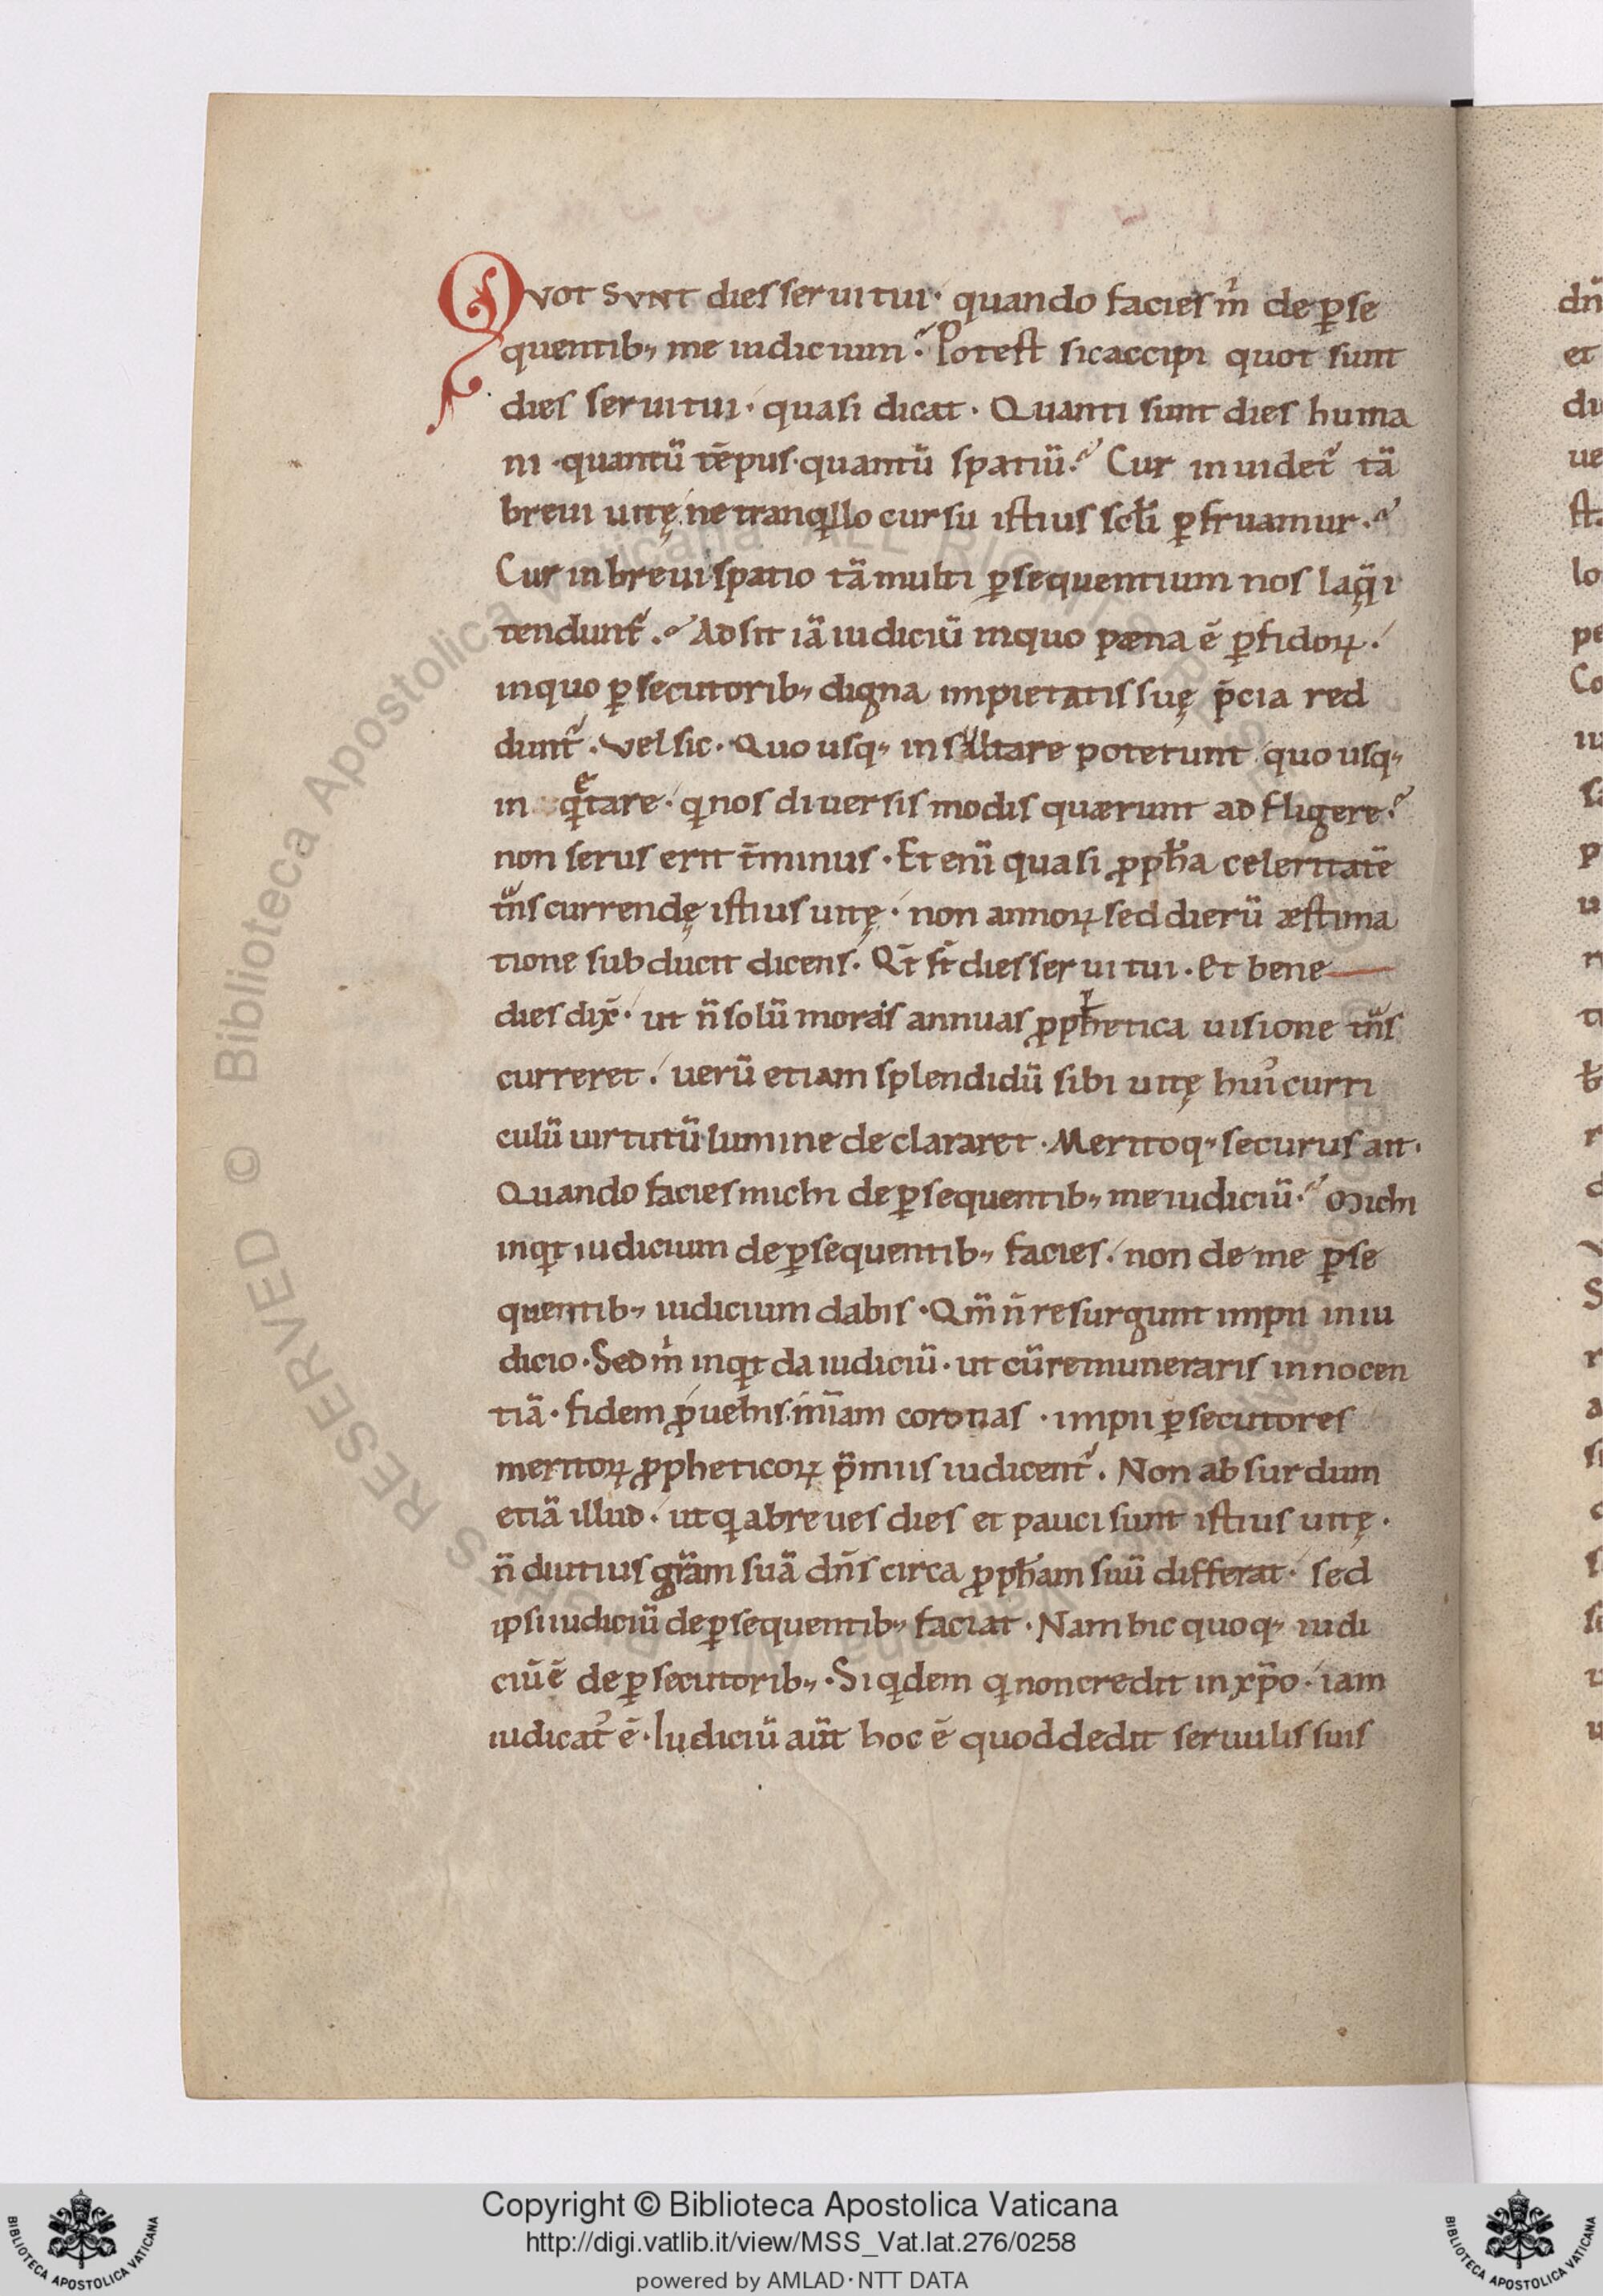 QVOT SVNT dies serui tui· quando facies m̅ de ꝑse
quentib; me iudicium? Potest sic accipi quot sunt
dies serui tui· quasi dicat· Quanti sunt dies huma
ni· quantū tēpus· quantū spatiū? Cur inuidet᷑ tā
breui uitę, ne tranqillo cursu istius scłi ꝑfruamur?
Cur in breui spatio tā multi ꝑsequentium nos laq̄i
tendunt᷑? Adsit iā iudiciū in quo pæna ē ꝑfidoꝝ·
in quo ꝑsecutorib; digna impietatis suę p̄cia red
dunt᷑· Vel sic· Quo usq; insaltare poterunt quo usq;
in qetare· qi nos diuersis modis quærunt adfligere?
non serus erit t̄minus· Et enī quasi ꝓpħa celeritatē
tn̄scurrendę istius uitę· non annoꝝ sed dierū æstima
tione subducit dicens· Qt̄ st̄ dies serui tui· Et bene
dies dix̄· ut n̄ solū moras annuas ꝓphetica uisione tn̄s
curreret· uerū etiam splendidū sibi uitę hui᷒ curri
culū uirtutū lumine declararet· Meritoq; securus ait·
Quando facies michi de ꝑsequentib; me iudiciū? Michi
inqt iudicium de ꝑsequentib; facies· non de me ꝑse
quentib; iudicium dabis· Qm̄ n̄ resurgunt impii in iu
dicio· Sed m̅ inqt da iudiciū· ut cū remuneraris innocen
tiā· fidem ꝓuehis· mīam coronas· impii ꝑsecutores
meritoꝝ ꝓpheticoꝝ p̄miis iudicent᷑· Non absurdum
etiā illud· ut qa breues dies et pauci sunt istius uitę·
n̄ diutius grām suā dn̄s circa ꝓpħam suū differat· sed
ipsi iudiciū de ꝑsequentib; faciat· Nam hic quoq; iudi
ciū ē de ꝑsecutorib;· Siqdem qi non credit in xp̄o· iam
iudicat᷒ ē· Iudiciū aūt hoc ē quod dedit seruulis suis
dn̄
et
ue
lo
pe
Co
Copyright © Biblioteca Apostolica Vaticana
http://digi.vatlib.it/view/MSS_Vat.lat.276/0258
powered by AMLAD·NTT DATA
BIBLIOTECA APOSTOLICA VATICANA
BIBLIOTECA APOSTOLICA VATICANA
© Biblioteca Apostolica Vaticana ALL RIGHTS RESERVED